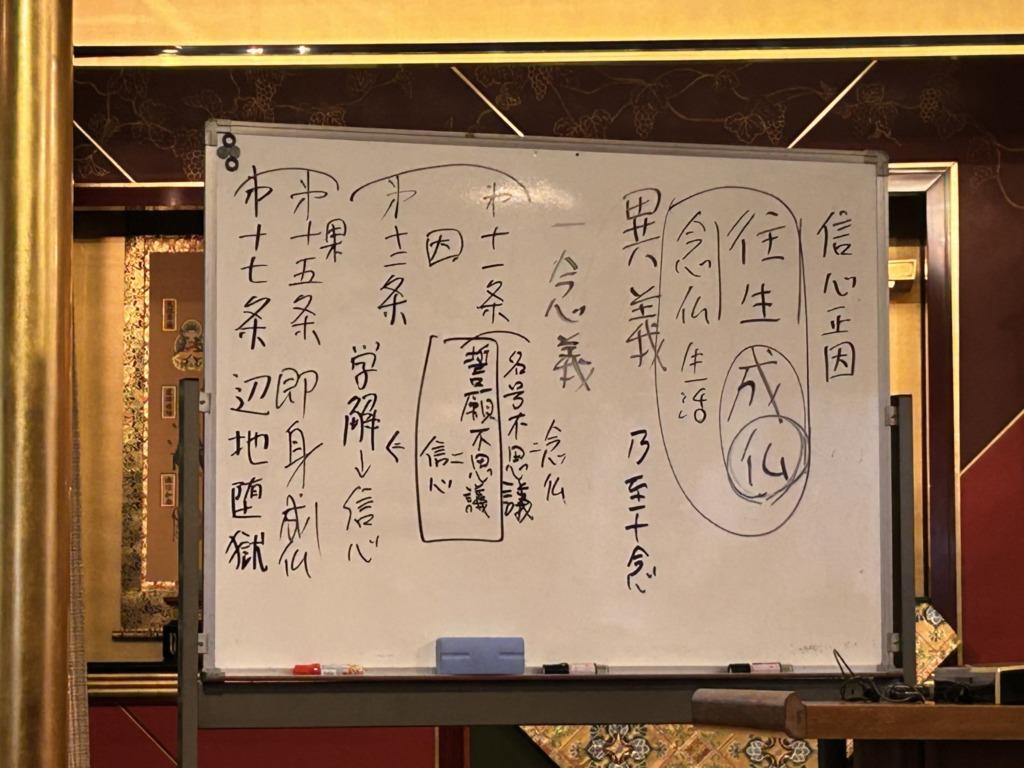 信心正因
往生成仏
念仏生活
異義 乃至十念
一念義
念仏
=
名号不思議
第十一条
誓願不思議
=
信心
因
第十二条
学解→信心
果
第十五条 即身成仏
第十七条 辺地堕獄